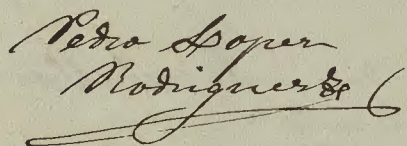 Pedro Lopez
Rodriguez